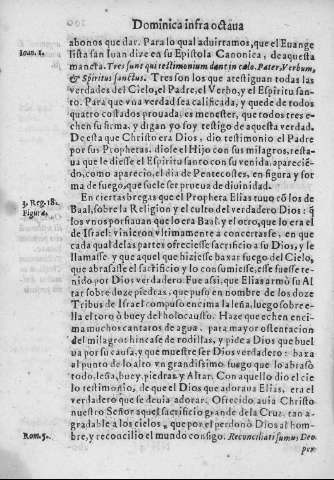 Dominica infra octaua
abonos que dar. Para lo qual aduirtamos, que el Euange
Ioan. 1.
lista san Iuan dize en su Epistola Canonica, de aquesta
mancta. Tres sunt qui testimonium dant in cælo. Pater, Verbum,
& Spiritus sanctus. Tres son los que atestiguan todas las
verdades del Cielo, el Padre, el Verbo, y el Espiritu san-
to. Para que vna verdad sea calificada, y quede de todos
quatro costados prouada, es menester, que todos tres e-
chen su firma, y digan yo soy testigo de aquesta verdad.
De esta que Christo era Dios, dio testimonio el Padre
por sus Prophetas, diole el Hijo con sus milagros, resta-
ua que le diesse el Espiritu santo con su venida, aparecié-
do, como aparecio, el dia de Pentecostes, en figura y for
ma de fuego, que suele ser prueua de diuinidad.
3. Reg. 18.
En ciertas bregas que el Propheta Elias tuuo cō los de
Figura.
Baal, sobre la Religion y el culto del verdadero Dios: q̃
los vnos porfiauan que lo era Baal, y el otro, que lo era el
de Israel: vinieron vltimamente a concertarse, en que
cada qual de las partes ofreciesse sacrificio a su Dios, y le
llamasse, y que aquel que hiziesse baxar fuego del Cielo,
que abrasasse el sacrificio y lo consumiesse, esse fuesse te-
nido por Dios verdadero. Fue assi, que Elias armò su Al
tar sobre doze piedras, que puso en nombre de los doze
Tribus de Israel compuso encima la leña, luego sobre e-
lla el toro ò buey del holocausto. Haze que echen enci-
ma muchos cantaros de agua, para mayor ostentacion
del milagro: hincase de rodillas, y pide a Dios que buel
ua por su causa, y que muestre ser Dios verdadero: baxa
al punto de lo alto vn grandissimo fuego que lo abrasò
todo, leña, buey, piedras, y Altar. Con aquello dio el cie
lo testimonio, de que el Dios que adoraua Elias, era el
verdadero que se deuia adorar. Ofrecido auia Christo
nuestro Señor aquel sacrificio grande de la Cruz, tan a-
gradable a los cielos, que por el perdonò Dios al hom-
Rom. 5.
bre, y reconcilio el mundo consigo. Reconciliati sumus Deo
per